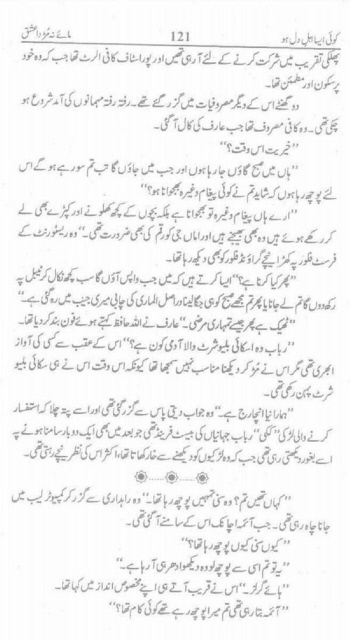 کوئی ایسا اہلِ دل ہو 121 مائے نہ مُڑ دا عشق
پھلکی تقریب میں شرکت کرنے کے لئے آ رہی تھیں اور پورا سٹاف کافی الرٹ تھا جب کہ وہ خود
پرسکون اور مطمئن تھا۔
دو گھنٹے اس کے دیگر مصروفیات میں گزر گئے تھے۔ رفتہ رفتہ مہمانوں کی آمد شروع ہو
چکی تھی۔ وہ کافی مصروف تھا جب عارف کی کال آ گئی۔
”خیریت اس وقت؟“
”ہاں میں صبح گاؤں جا رہا ہوں اور جب میں جاؤں گا تب تم سو رہے ہو گے اس
لئے پوچھ رہا ہوں کہ شاید تم نے کوئی پیغام وغیرہ بھجوانا ہو؟“
”ارے ہاں پیغام وغیرہ تو بھجوانا ہے بلکہ بچوں کے کچھ کھلونے اور کپڑے بھی لے
کر رکھے ہوئے ہیں وہ بھی بھیجنے ہیں اور اماں جی کو رقم کی بھی ضرورت تھی۔“ وہ ریسٹورنٹ کے
فرسٹ فلور پہ کھڑا نیچے گراؤنڈ فلور کو بھی دیکھ رہا تھا۔
”پھر کیا کرنا ہے؟“ ”ایسا کرتے ہیں کہ میں جب واپس آؤں گا سب کچھ نکال کر ٹیبل پہ
رکھ دوں گا تم لے جانا یا پھر تم مجھے صبح کو ہی جگا لینا دراصل الماری کی چابی میری جیب میں رہ گئی ہے۔“
”ٹھیک ہے پھر جیسے تمہاری مرضی۔“ عارف نے اللہ حافظ کہتے ہوئے فون بند کر دیا تھا۔
”رباب وہ اسکائی بلیو شرٹ والا آدمی کون ہے؟“ اس کے عقب سے کسی کی آواز
ابھری تھی مگر اس نے مڑ کر دیکھنا مناسب نہیں سمجھا تھا کیونکہ اس وقت اس نے ہی سکائی بلیو
شرٹ پہن رکھی تھی۔
”ہمارا نیا انچارج ہے۔“ وہ جواب دیتی پاس سے گزر گئی تھی اور اسے پتہ چلا کہ استفسار
کرنے والی لڑکی ”لکی“ رباب جہانیاں کی بیسٹ فرینڈ تھی جو بعد میں بھی ایک دو بار سامنا ہونے پہ
اسے بغور دیکھتی رہی تھی جب کہ وہ لڑکیوں کو دیکھنے سے خار کھاتا تھا، اکثر اس کی نظر نیچے رہتی تھی۔
”کہاں تھیں تم؟ وہ سنی تمہیں پوچھ رہا تھا۔“ وہ راہداری سے گزر کر کمپیوٹر لیب میں
جانا چاہ رہی تھی۔ جب آئمہ اچانک اس کے سامنے آ گئی تھی۔
”کیوں سنی کیوں پوچھ رہا تھا؟“
”یہ تو تم اسی سے پوچھ لو وہ دیکھو ادھر ہی آ رہا ہے۔“
”ہائے گرلز۔“ اس نے قریب آتے ہی اپنے مخصوص انداز میں کہا تھا۔
”آئمہ بتا رہی تھی تم میرا پوچھ رہے تھے کوئی کام تھا؟“